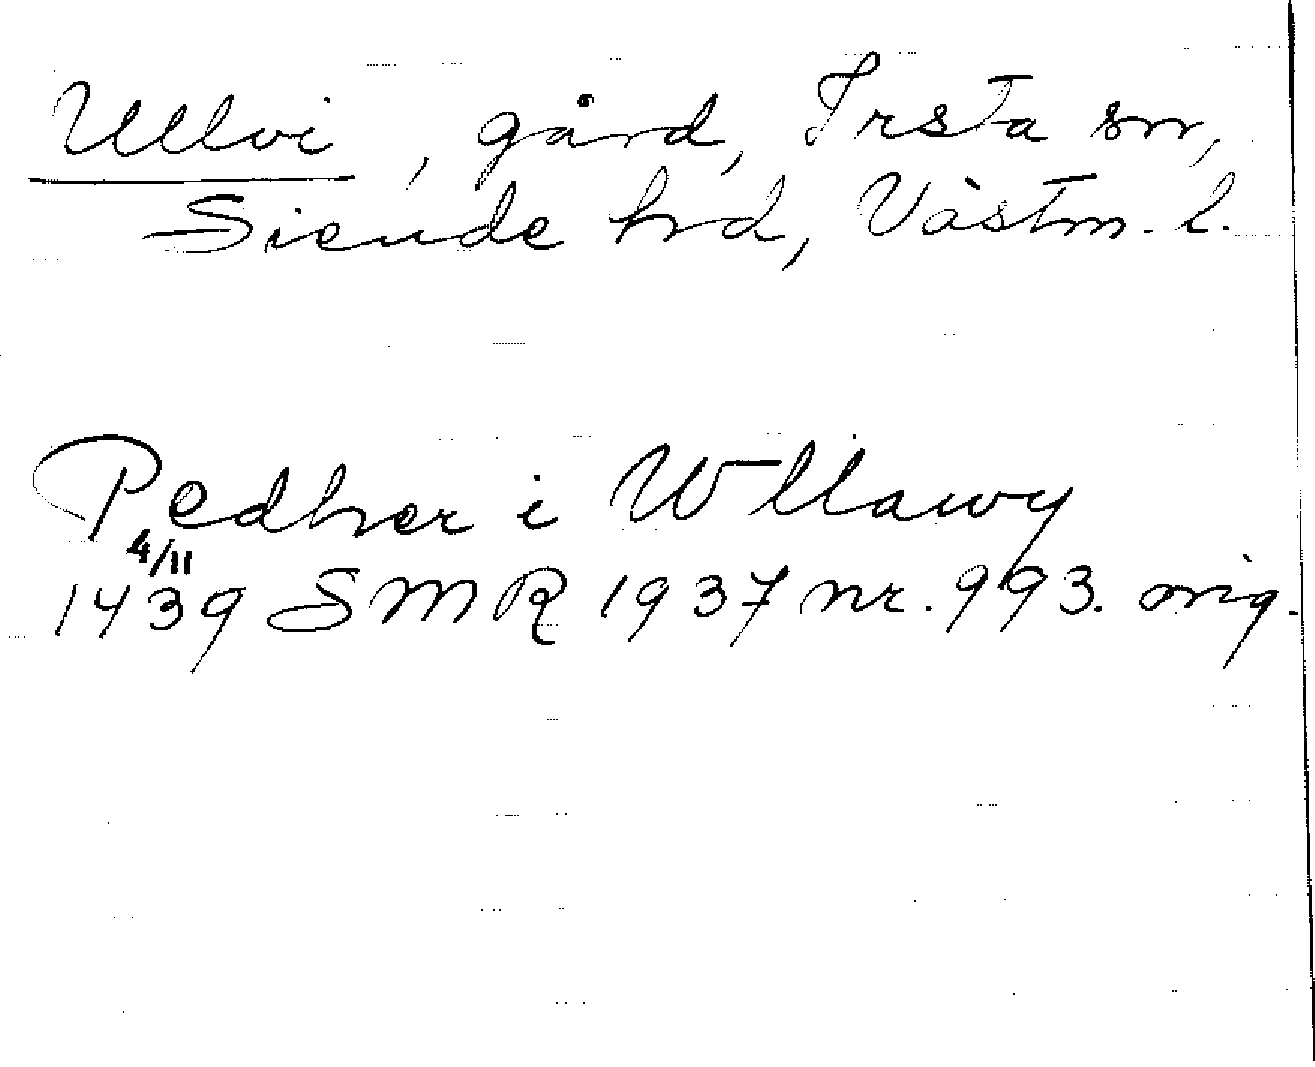 Ullvi, gård, Irsta sn,
Siende hrd, Västm. l.
Pedher i Wllawy
4/11
1439 SMR 1937 nr. 993. orig.